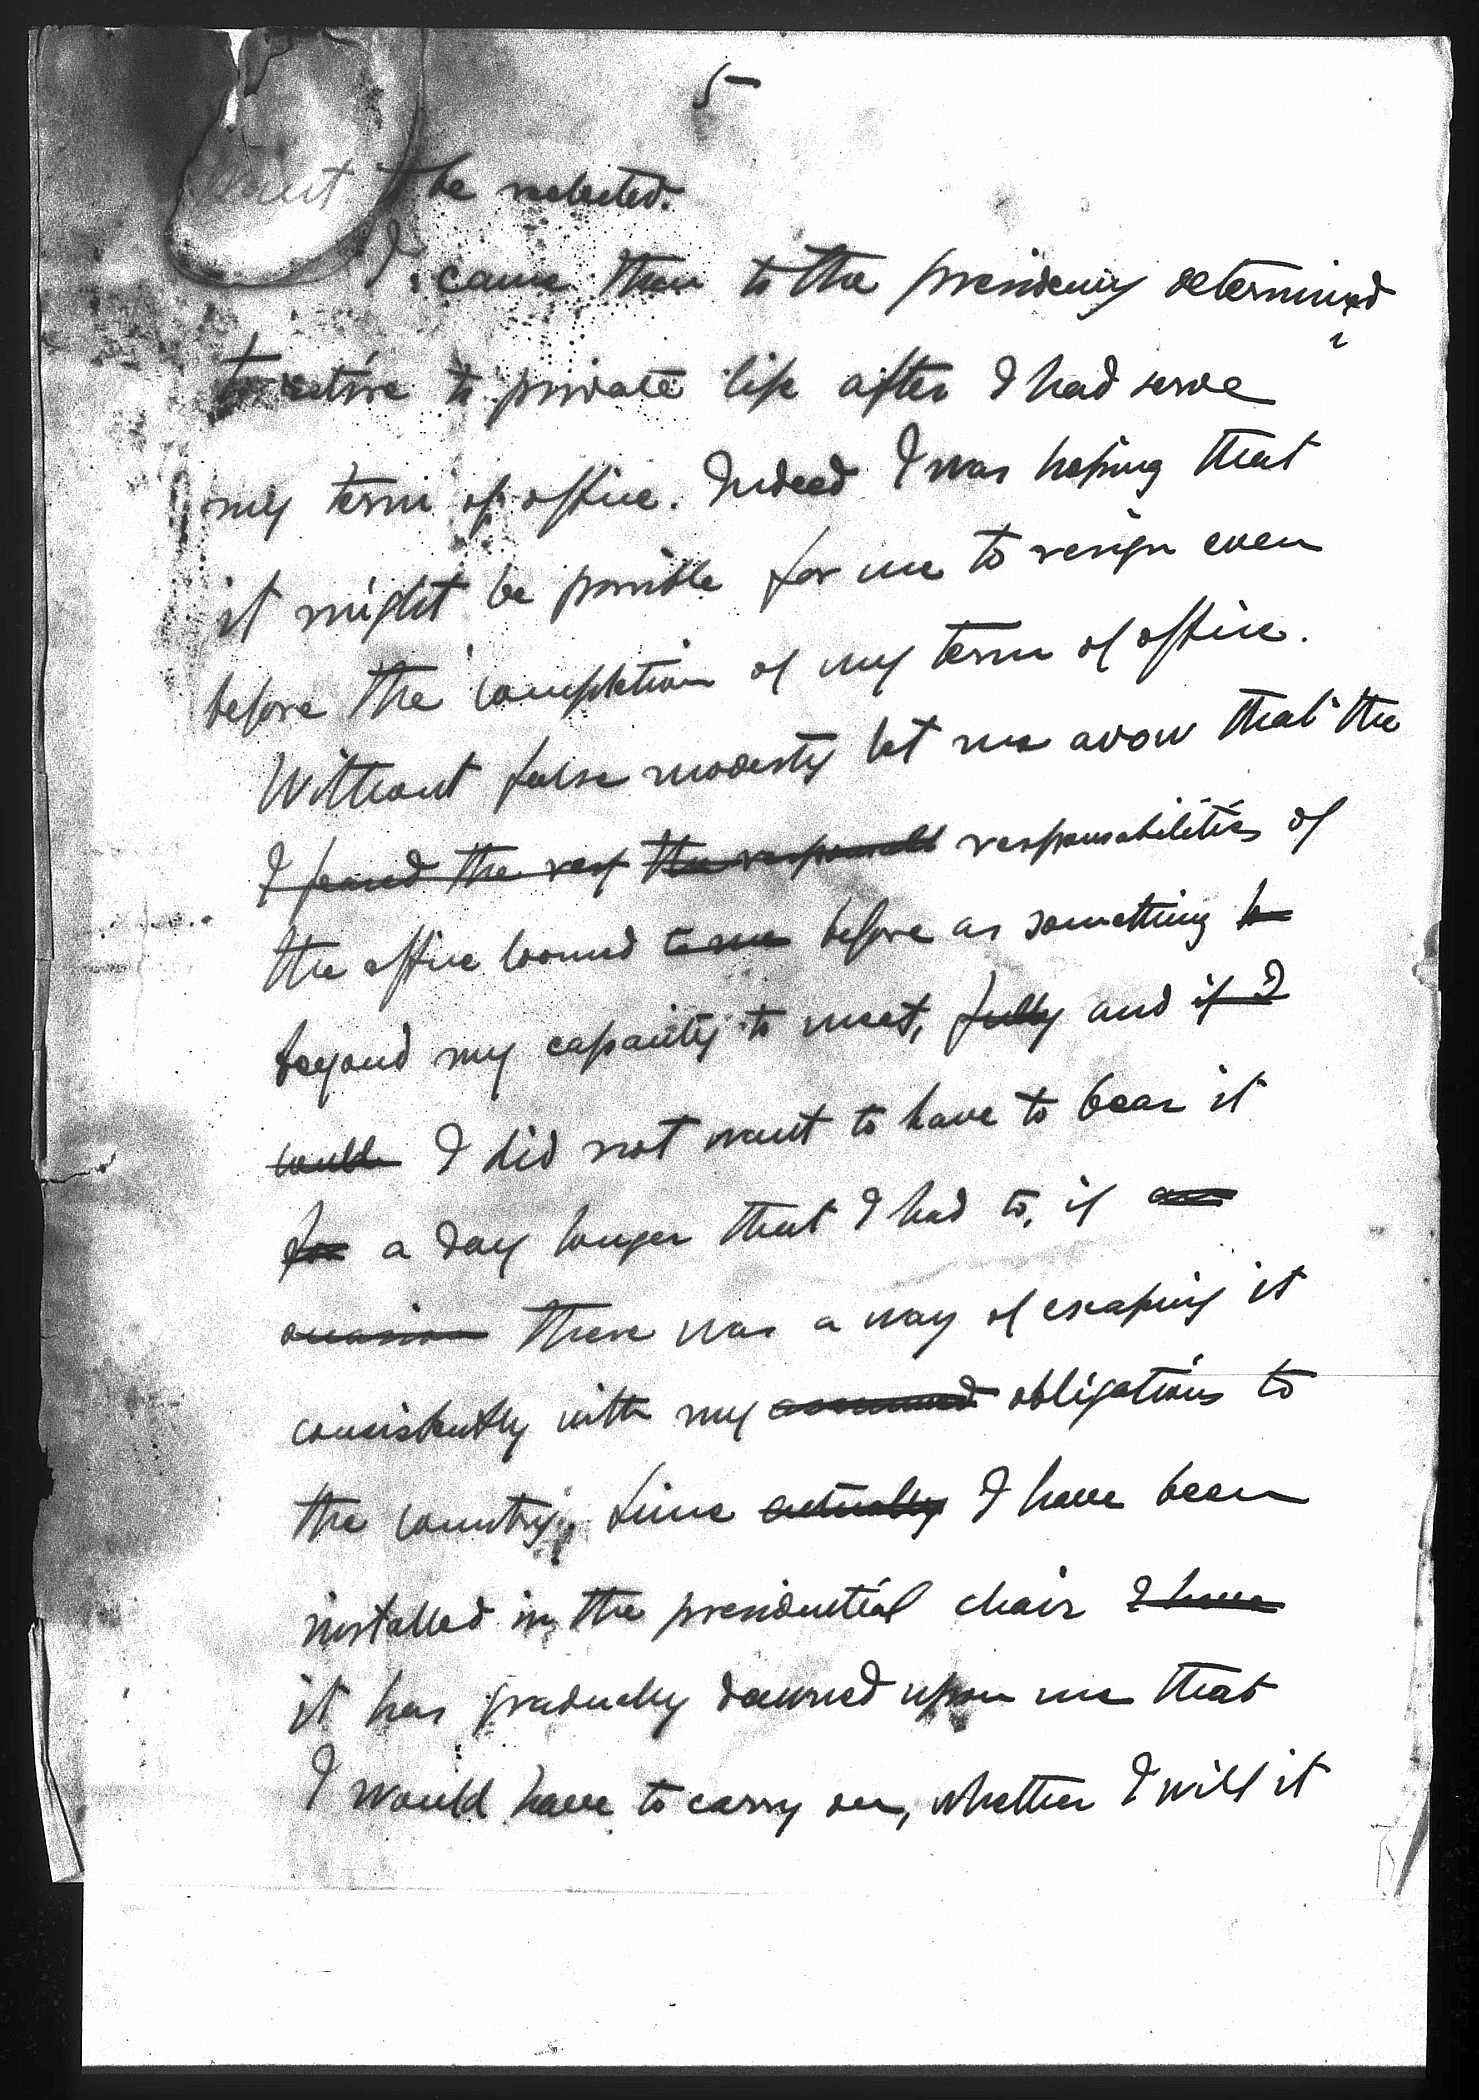 5
want to be reelected.
I came then to the presidency determined
to retire to private life after I had serve
my term of office. Indeed I was hoping that
it might be possible for me to resign even
before the completion of my term of office.
Without false modesty let me avow that the
I feared the resp the responsabil responsabilities of
the office loomed to me before as something to
beyond my capacity to meet, fully and if I
could I did not want to have to bear it
for a day longer that I had to, if
occasion there was a way of escaping it
consistently with my assumed obligations to
the country. Since actually I have been
installed in the presidential chair I have
it has gradually dawned upon me that
I would have to carry on, whether I will it